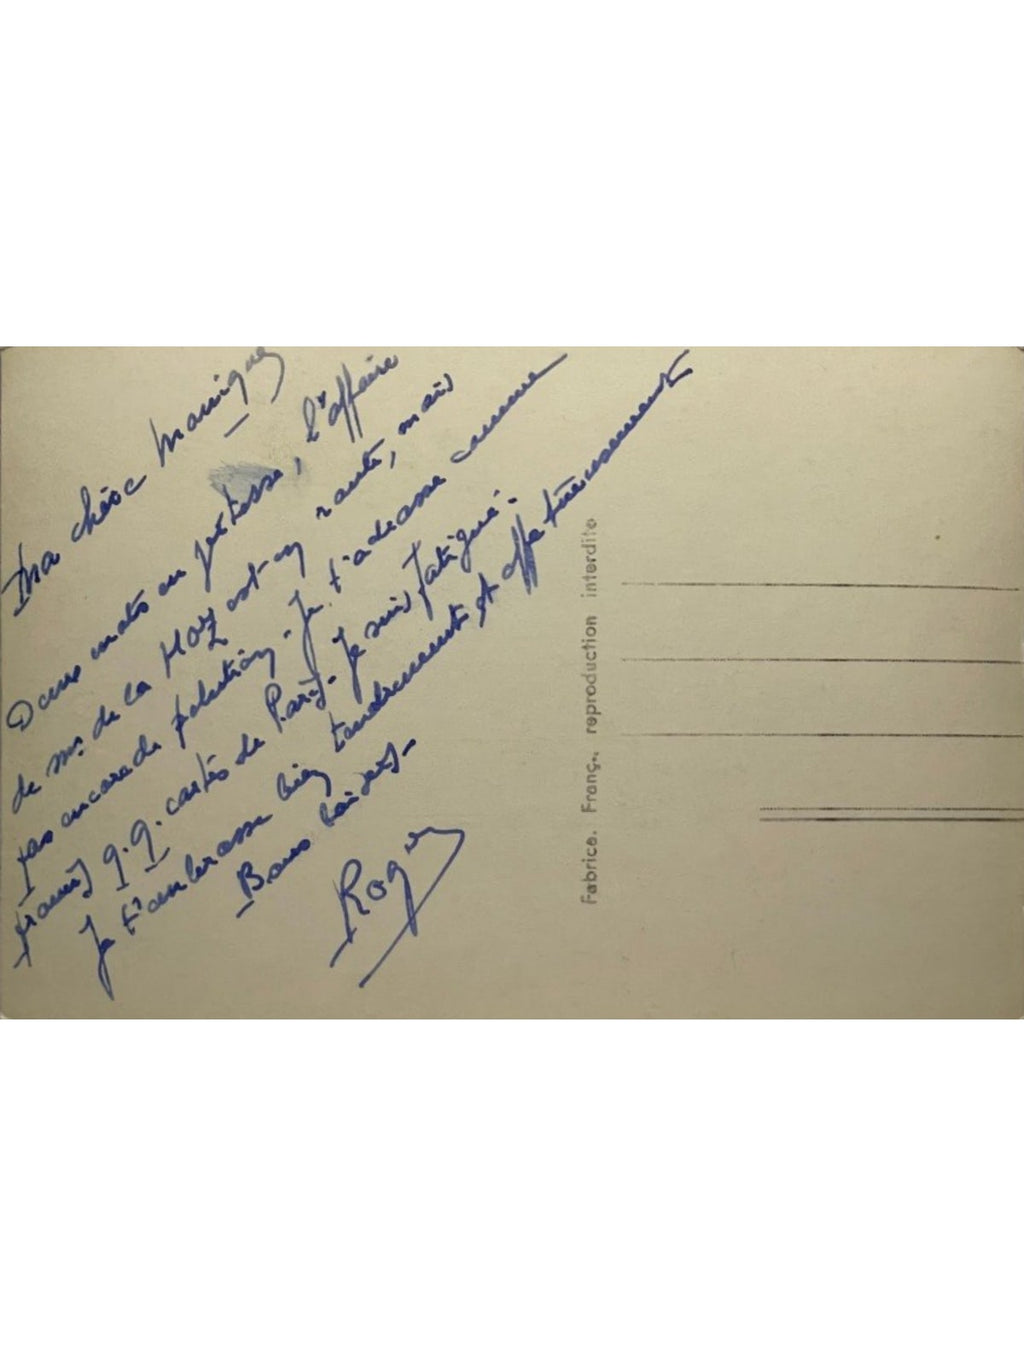 Ma chère Monique
Deux mots en vitesse, l'affaire
de Mr de la Hoz est en route, mais
pas encore de solution. Je t'adresse comme
promis q.q. cartes de Paris. Je suis fatigué.
Je t'embrasse bien tendrement et affectueusement
Bons baisers.
Roger
Fabrice. Franç., reproduction interdite